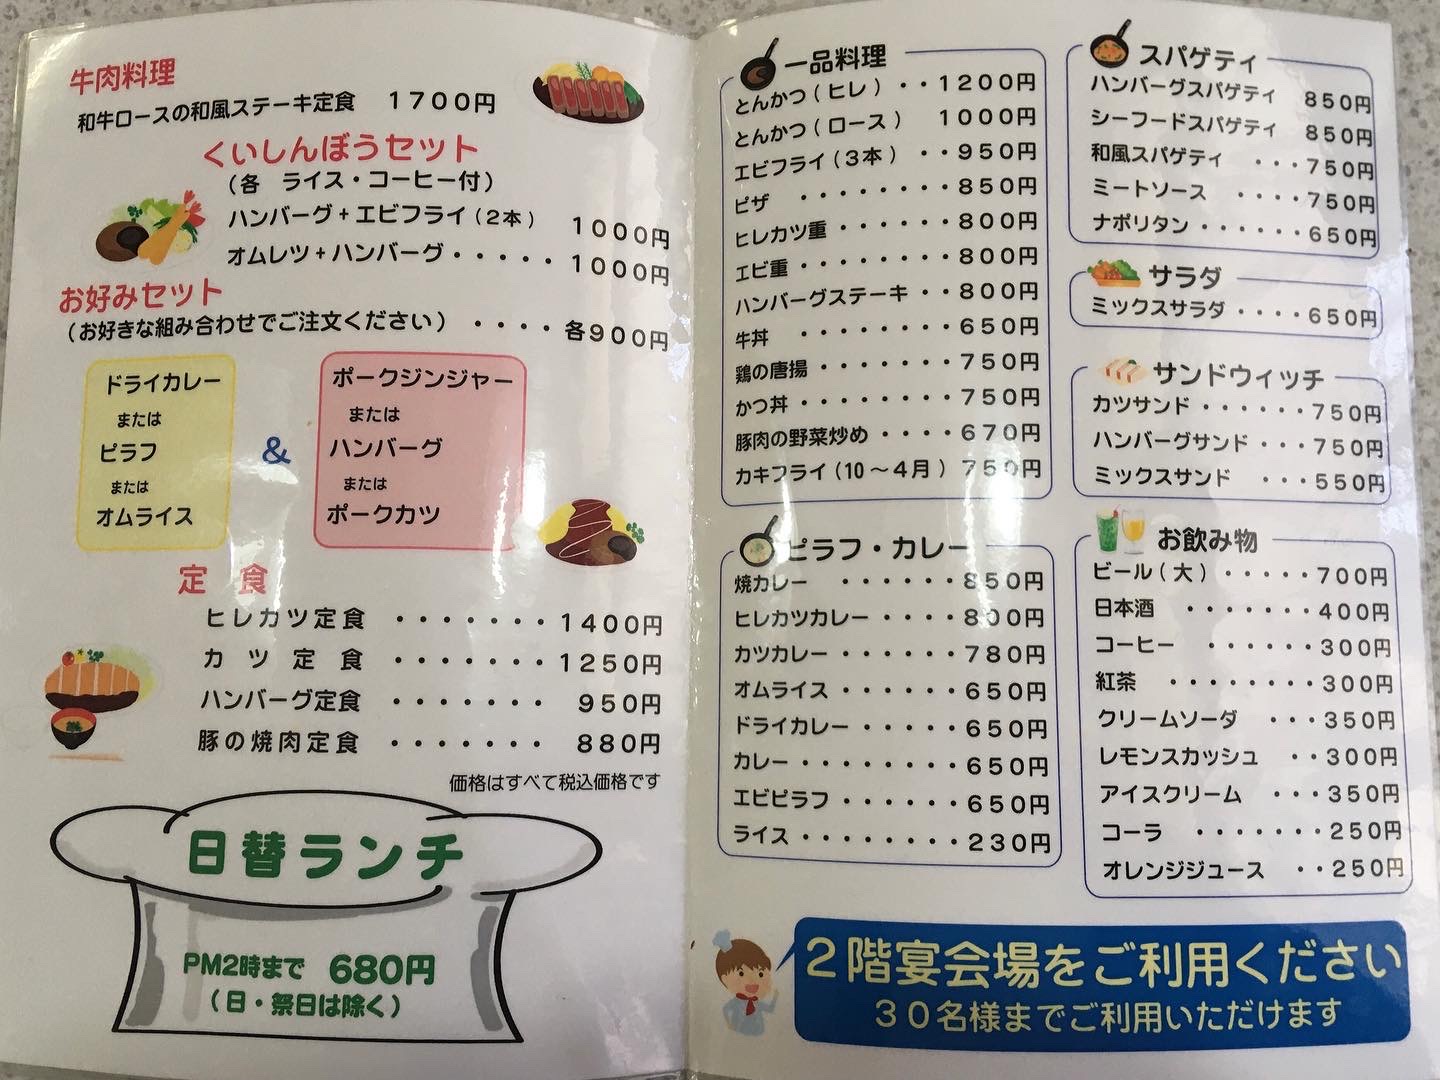 牛肉料理
和牛ロースの和風ステーキ定食 1700円
くいしんぼうセット
(各 ライス・コーヒー付)
ハンバーグ+エビフライ(2本) 1000円
オムレツ+ハンバーグ・・・・・1000円
お好みセット
(お好きな組み合わせでご注文ください) ・・・・各900円
ドライカレー
または
ピラフ
または
オムライス
&
ポークジンジャー
または
ハンバーグ
または
ポークカツ
定 食
ヒレカツ定食 ・・・・・・・1400円
カツ定食 ・・・・・・・1250円
ハンバーグ定食 ・・・・・・・ 950円
豚の焼肉定食 ・・・・・・・ 880円
価格はすべて税込価格です
日替ランチ
PM2時まで 680円
(日・祭日は除く)
一品料理
とんかつ(ヒレ)・・1200円
とんかつ(ロース) 1000円
エビフライ(3本)・・950円
ピザ ・・・・・・・850円
ヒレカツ重・・・・・800円
エビ重・・・・・・・800円
ハンバーグステーキ・・800円
牛丼 ・・・・・・・650円
鶏の唐揚・・・・・・750円
かつ丼・・・・・・・750円
豚肉の野菜炒め・・・・670円
カキフライ(10〜4月) 750円
ピラフ・カレー
焼カレー ・・・・・・850円
ヒレカツカレー・・・・800円
カツカレー・・・・・・780円
オムライス・・・・・・650円
ドライカレー・・・・・650円
カレー・・・・・・・・650円
エビピラフ・・・・・・650円
ライス・・・・・・・・230円
スパゲティ
ハンバーグスパゲティ 850円
シーフードスパゲティ 850円
和風スパゲティ ・・・750円
ミートソース ・・・・750円
ナポリタン・・・・・・650円
サラダ
ミックスサラダ・・・・650円
サンドウィッチ
カツサンド・・・・・・750円
ハンバーグサンド・・・750円
ミックスサンド ・・・550円
お飲み物
ビール(大)・・・・・700円
日本酒 ・・・・・・・400円
コーヒー ・・・・・・300円
紅茶 ・・・・・・・・300円
クリームソーダ ・・・350円
レモンスカッシュ ・・300円
アイスクリーム ・・・350円
コーラ ・・・・・・・250円
オレンジジュース ・・250円
2階宴会場をご利用ください
30名様までご利用いただけます